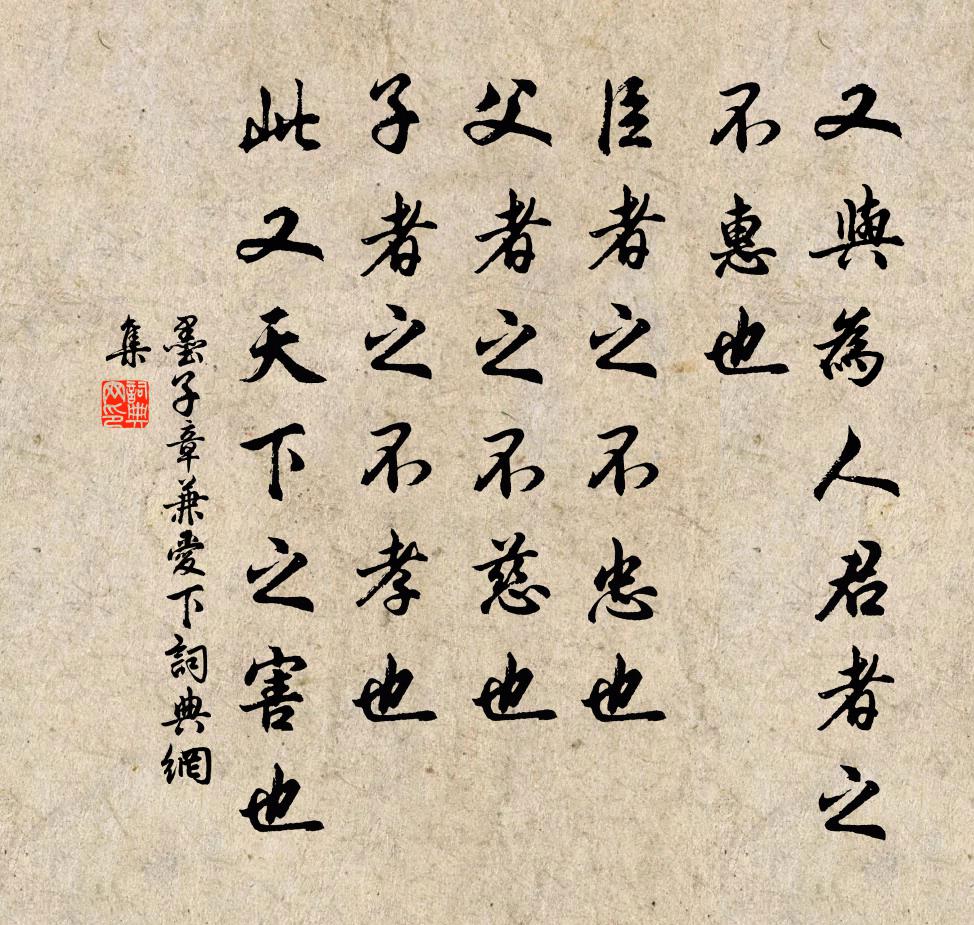 又與為人君者之
不惠也
臣者之不忠也
父者之不慈也
子者之不孝也
此又天下之害也
墨子章兼愛下詞典網
集
詞典
网印